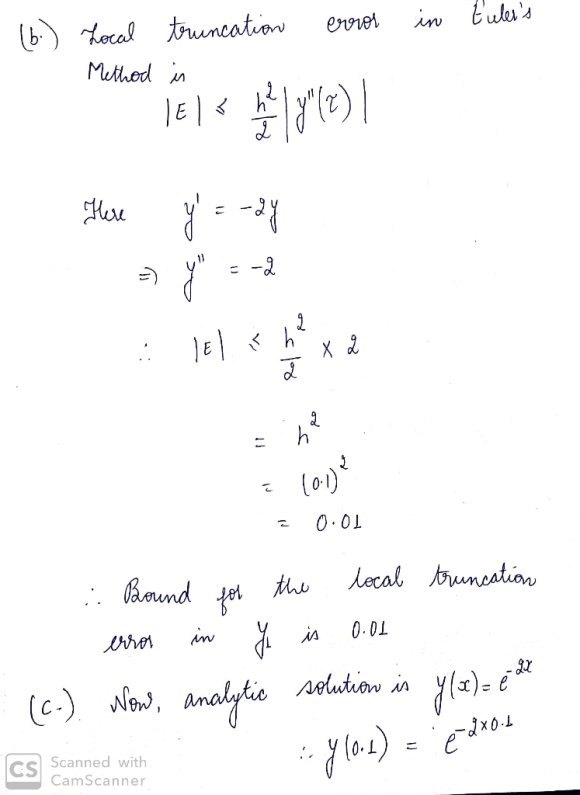 (b.) Local truncation error in Euler's
Method is
|E| ≤ h²/2 |y''(τ)|
Here y' = -2y
⇒ y'' = -2
∴ |E| ≤ h²/2 × 2
= h²
= (0.1)²
= 0.01
∴ Bound for the local truncation
error in y₁ is 0.01
(c.) Now, analytic solution is y(x) = e^{-2x}
∴ y(0.1) = e^{-2×0.1}
CS Scanned with
CamScanner